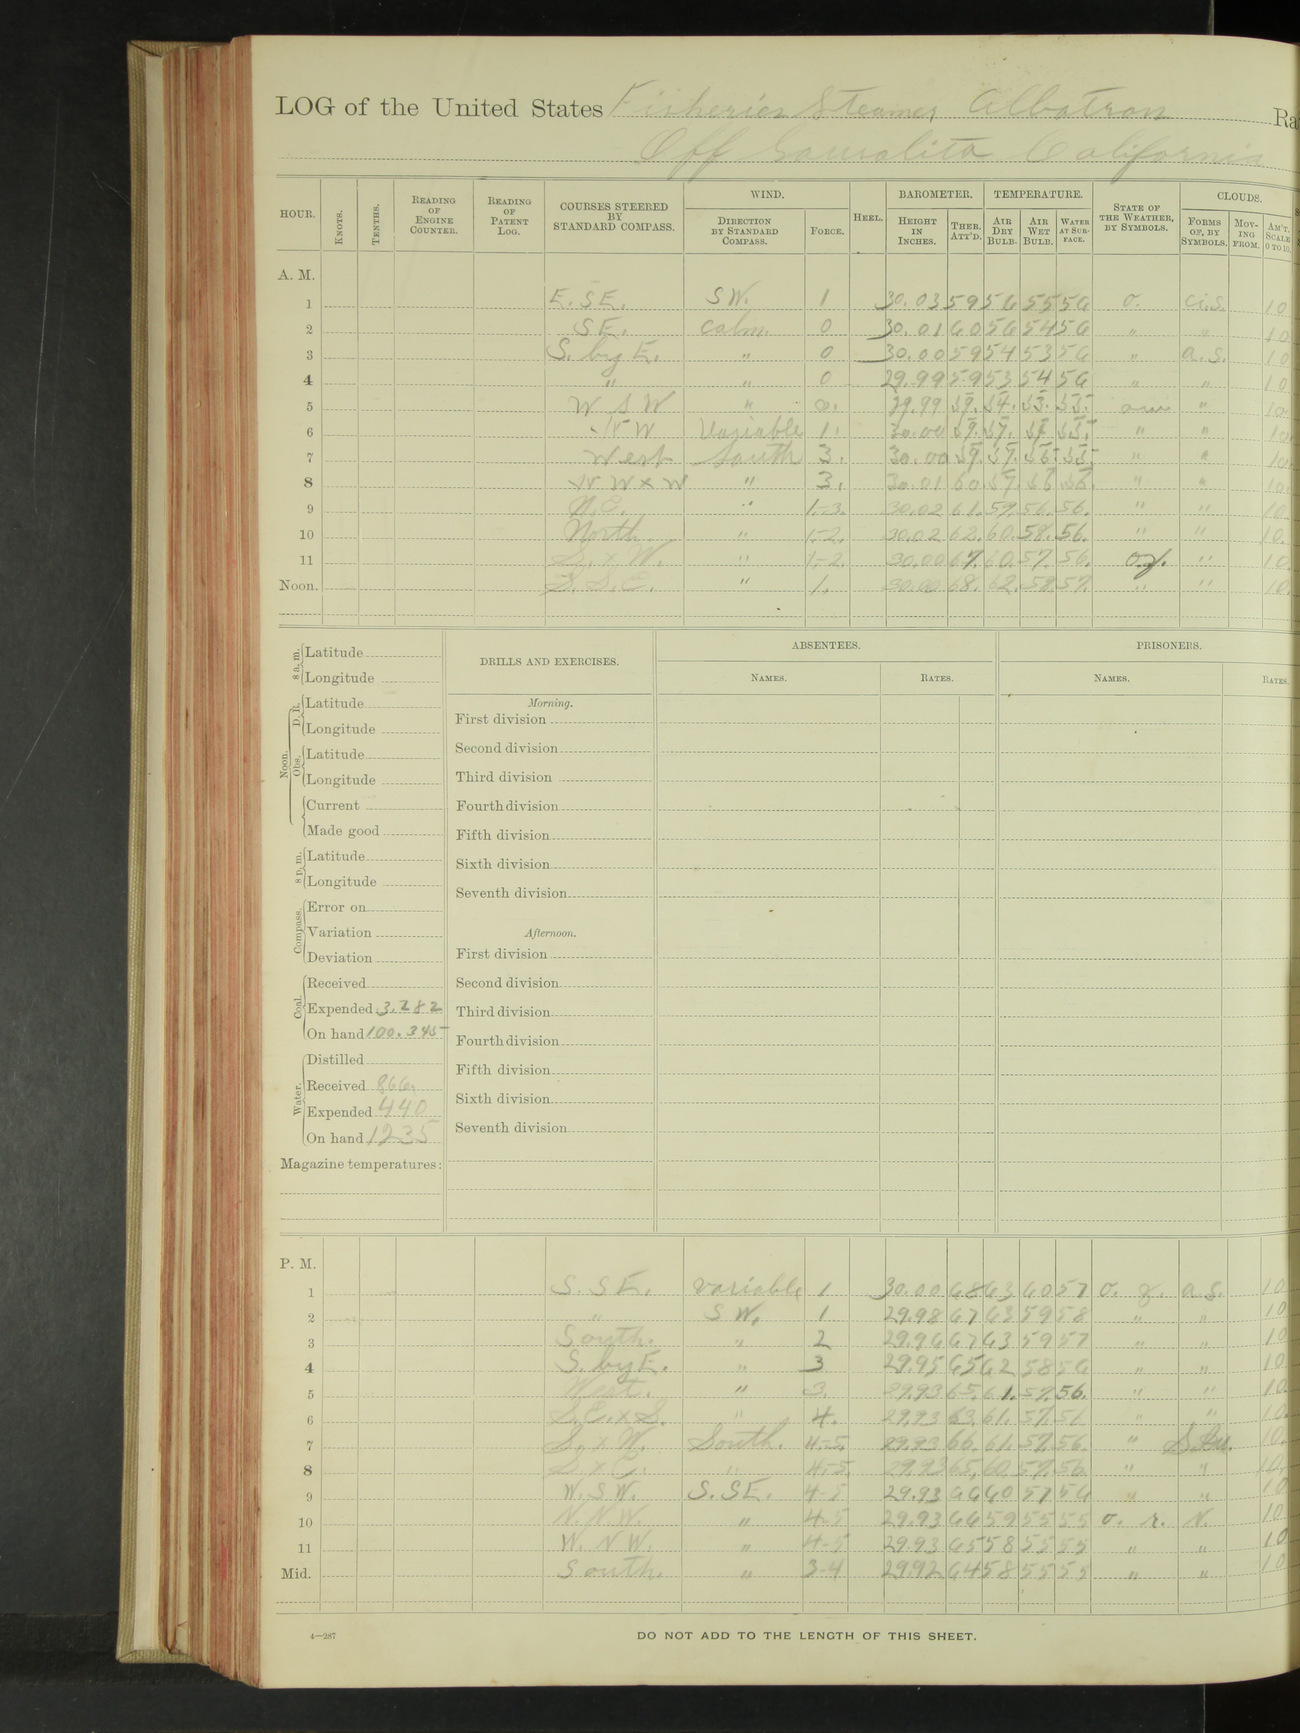 LOG of the United States Fisheries Steamer Albatross Ra
Off Sausalito California
HOUR. KNOTS. TENTHS. READING OF ENGINE COUNTER. READING OF PATENT LOG. COURSES STEERED BY STANDARD COMPASS. WIND. DIRECTION BY STANDARD COMPASS. FORCE. HEEL. BAROMETER. HEIGHT IN INCHES. THER. ATT'D. TEMPERATURE. AIR DRY BULB. AIR WET BULB. WATER AT SURFACE. STATE OF THE WEATHER, BY SYMBOLS. CLOUDS. FORMS OF, BY SYMBOLS. MOVING FROM. AM'T, SCALE 0 TO 10.
A. M.
1 E. SE. SW. 1 30.03 59 56 55 56 o. ci.s. 10
2 SE. calm. 0 30.01 60 56 54 56 " " 10
3 S. by E. " 0 30.00 59 54 53 56 " a.s. 10
4 " " 0 29.99 59 53 54 56 " " 10
5 W S W " 0. 29.99 59. 54. 53. 55. " 10.
6 Variable 1. 30.00 59. 57. 55. " " 10.
7 West South 3. 30.00 59. 57. 56. 55. " " 10.
8 W x W " 3. 30.01 60 57. 56 56. " " 10.
9 N.E. " 1-3. 30.02 61. 59. 56. 56. " " 10.
10 North " 1-2. 30.02 62. 60. 58. 56. " " 10.
11 S. x W. " 1-2 30.00 67. 60. 57. 56. o.z. " 10.
Noon. S.S.E. " 1. 30.00 68. 62. 58. 57. " " 10.
8 a. m. Latitude
Longitude
Noon. D. R. Latitude
Longitude
Obs. Latitude
Longitude
Current
Made good
8 p. m. Latitude
Longitude
Compass. Error on
Variation
Deviation
Coal. Received
Expended 3.282
On hand 100.345
Water. Distilled
Received 866.
Expended 440
On hand 1235
Magazine temperatures:
DRILLS AND EXERCISES.
Morning.
First division
Second division
Third division
Fourth division
Fifth division
Sixth division
Seventh division
Afternoon.
First division
Second division
Third division
Fourth division
Fifth division
Sixth division
Seventh division
ABSENTEES.
NAMES. RATES.
PRISONERS.
NAMES. RATES.
P. M.
1 S. SE. variable 1 30.00 68 63 60 57 o. z. a s. 10
2 " S W. 1 29.98 67 63 59 58 " " 10
3 South. " 2 29.96 67 63 59 57 " " 10
4 S. by E. " 3 29.95 65 62 58 56 " " 10.
5 West. " 3. 29.93 65. 61. 57. 56. " " 10.
6 S.E. x S. " 4. 29.93 63. 61. 57. 56 " " 10.
7 S. x W. South. 4-5. 29.93 66. 61. 57. 56. " 10.
8 S x E. " 4-5. 29.93 65. 60. 57. 56. " " 10.
9 W. SW. S. SE. 4-5 29.93 66 60 57 56 " " 10
10 N. N W. " 4-5 29.93 66 59 55 55 o. r. N. 10
11 W. N W. " 4-5 29.93 65 58 55 55 " " 10
Mid. South. " 3-4 29.92 64 58 55 55 " " 10
4—287
DO NOT ADD TO THE LENGTH OF THIS SHEET.